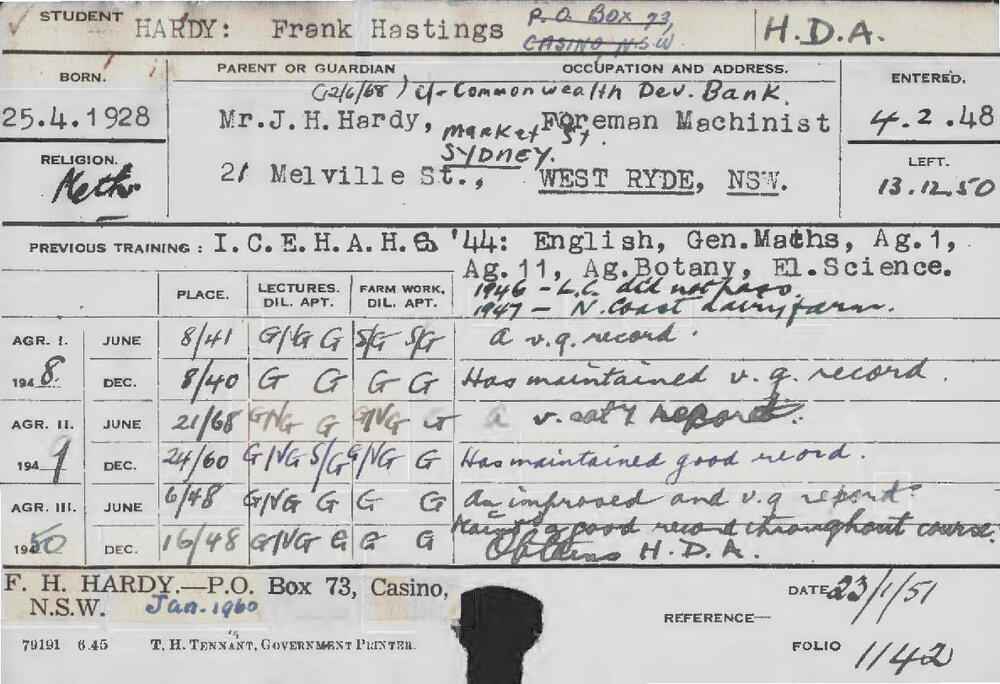 STUDENT HARDY: Frank Hastings P.O. BOX 73, CASINO N.S.W. H.D.A.
BORN. PARENT OR GUARDIAN OCCUPATION AND ADDRESS. ENTERED.
(12/6/68) c/- Commonwealth Dev. Bank.
25.4.1928 Mr.J.H.Hardy, Foreman Machinist 4.2.48
Market St.
RELIGION. SYDNEY. LEFT.
Meth. 21 Melville St., WEST RYDE, NSW. 13.12.50
PREVIOUS TRAINING: I.C.E.H.A.H.S '44: English, Gen.Maths, Ag.1,
Ag.11, Ag.Botany, El.Science.
1946 - L.C. did not pass.
1947 - N. Coast dairy farm.
PLACE. LECTURES. DIL. APT. FARM WORK, DIL. APT.
AGR. I. JUNE 8/41 G/VG G S/G S/G A v.g. record.
1948. DEC. 8/40 G G G G Has maintained v.g. record.
AGR. II. JUNE 21/68 G/VG G G/VG G a v. sat'y report.
1949 DEC. 24/60 G/VG S/G G/VG G Has maintained good record.
AGR. III. JUNE 6/48 G/VG G G G An improved and v.g report.
1950 DEC. 16/48 G/VG G G G good record throughout course.
Obtains H.D.A.
F. H. HARDY.—P.O. Box 73, Casino,
N.S.W. Jan. 1960
DATE 23/1/51
REFERENCE—
79191 6.45 T. H. TENNANT, GOVERNMENT PRINTER.
FOLIO 1142